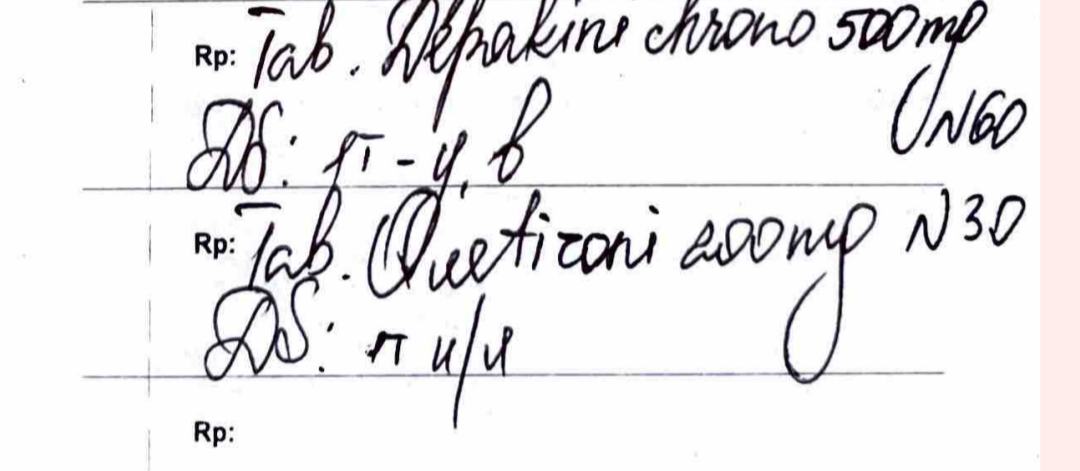 Rp: Tab. Depakini chrono 500mg
N60
DS: 1т - у, в
Rp: Tab. Quetironi 200mg N30
DS: т н/н
Rp: